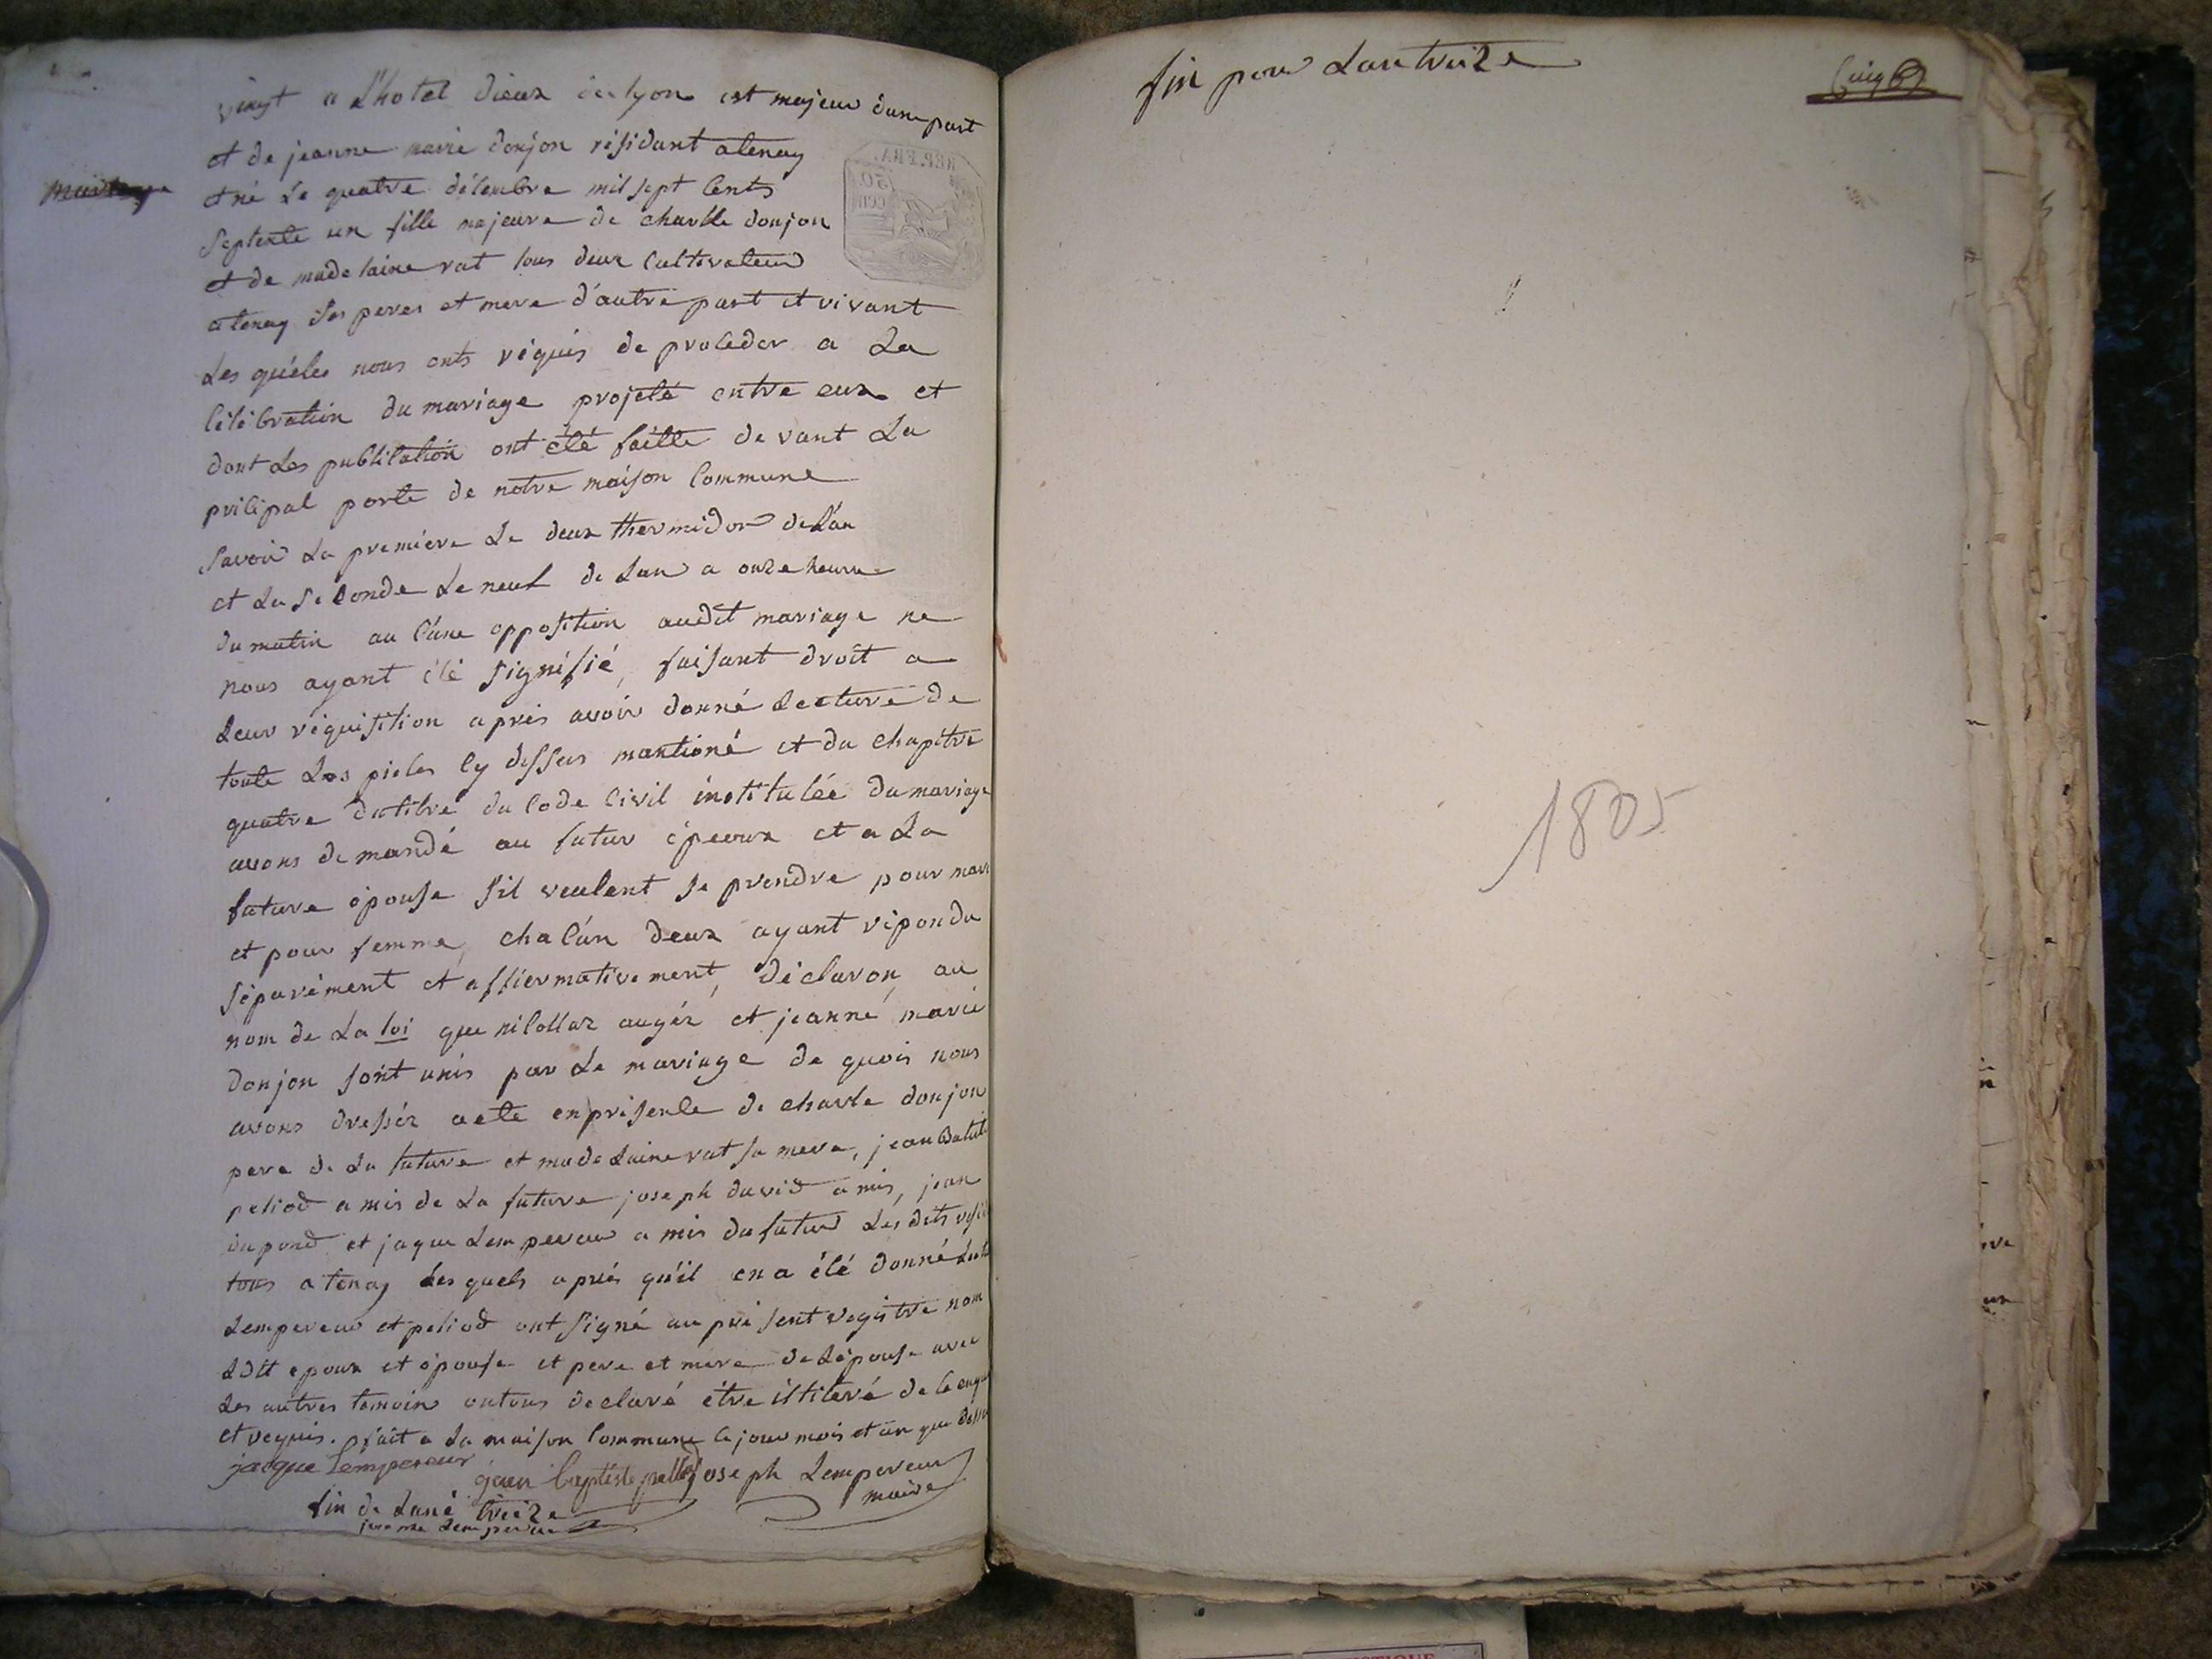 vingt a L'hotel dieux de lyon est majeur dune part
et de jeanne marie donjon résidant atenay
mariage
et né Le quatre décembre mil sept cents
septente un fille majeure de charlle donjon
et de made laine rat tous deux cultivateur
a tenay ses peres et mere d'autre part et vivant
Les quéles nous onts réquis de proceder a La
célébration du mariage projeté entre eux et
dont Les publication ont été faitte de vant La
pricipal porte de notre maison commune
Savoir La premiere Le deux thermidor de L'an
et La seconde Le neuf de Lan a onze heure
du matin au cune opposition audit mariage ne
nous ayant été signéfié, faisant droit a
Leur réquisition après avoir donné Lecture de
toute Les pieces cy dessus mantioné et du chapitre
quatre du titre du code civil institulée du mariage
avons de mandé au futur épeoux et a La
future épouse s'il veulent se prendre pour mari
et pour femme, chacún deux ayant répondu
séparément et affiermative ment, déclaron, au
nom de La loi que nicollaz augér et jeanné marie
donjon sont unis par Le mariage de quois nous
avons dressér acte en présence de charle donjon
pere de La future et made Laine rat sa mere, jean Batit
peliod a mis de La future joseph david a mis, jean
dupond et jaque Lempereur a mis du futur Les dits rési
tous a tenay Les quels après qu'il en a été donné Lect
Lempereur et peliod ont signé au présent registre nom
Ldit epoux et épouse et pere et mere de Lépouse avec
Les autres temoin ontous declaré étre illiteré de ce enqui
et requis. fait a La maison commune Le jour mois et an que dessu
jacque Lempereur
jean baptiste pelliod joseph Lempereur
maire
fin de Lané treize
Lempereur
fin pour Lan treize
1805
REP. FRA.
50
cen